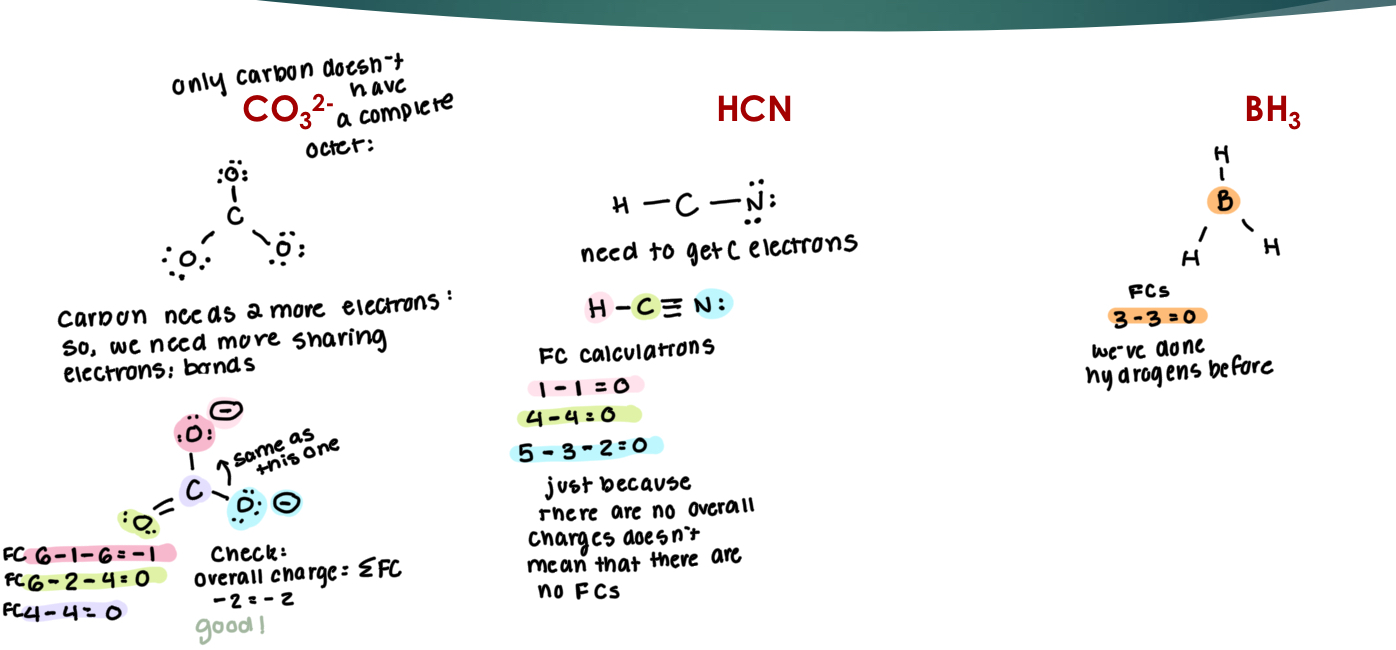 only carbon doesn't
have
CO₃²⁻
a complete
octet:
:Ö:
C
:O:
:Ö:
Carbon needs 2 more electrons:
so, we need more sharing
electrons: bonds
:Ö: ⊖
same as
this one
C
:O
:Ö: ⊖
FC 6-1-6=-1
FC 6-2-4=0
FC 4-4=0
Check:
overall charge = ΣFC
-2=-2
good!
HCN
H-C-N:
need to get C electrons
H-C≡N:
FC calculations
1-1=0
4-4=0
5-3-2=0
just because
there are no overall
charges doesn't
mean that there are
no FCs
BH₃
H
B
H H
FCs
3-3=0
we've done
hydrogens before